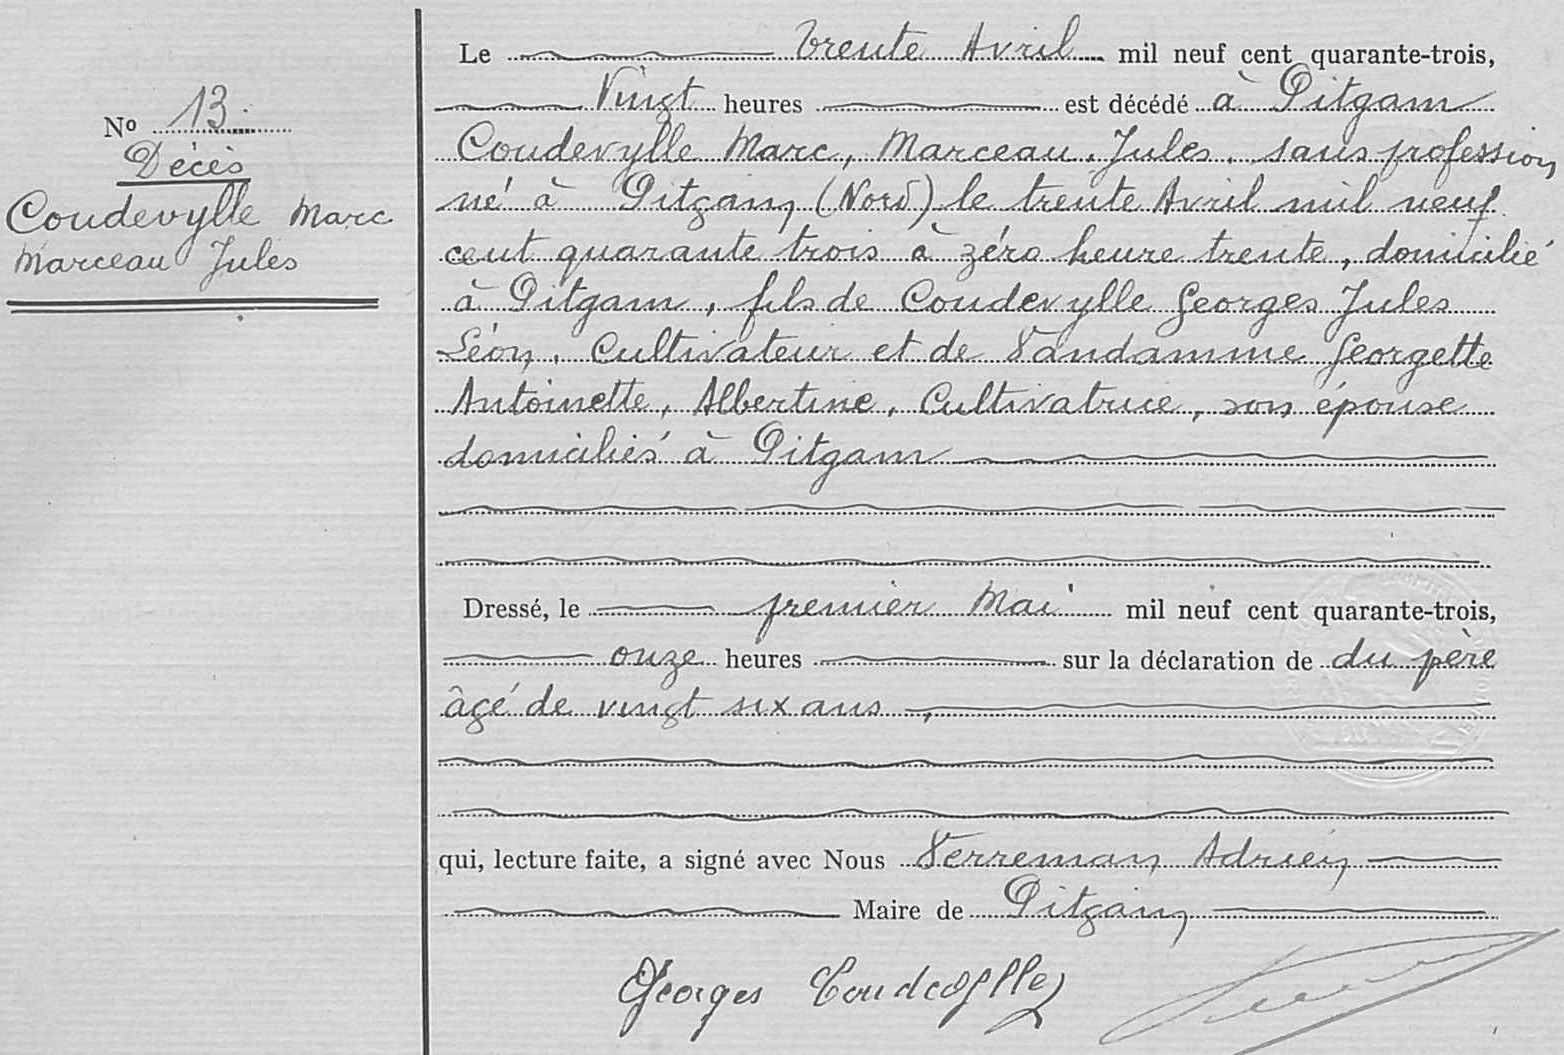 No 13.
Décès
Coudevylle Marc
Marceau Jules
Le trente Avril mil neuf cent quarante-trois,
Vingt heures est décédé à Pitgam
Coudevylle Marc, Marceau, Jules, sans profession
né à Pitgam (Nord) le trente Avril mil neuf
cent quarante trois à zéro heure trente, domicilié
à Pitgam, fils de Coudevylle Georges Jules
Léon, Cultivateur et de Vandamme Georgette
Antoinette, Albertine, Cultivatrice, son épouse
domiciliés à Pitgam
Dressé, le premier Mai mil neuf cent quarante-trois,
onze heures sur la déclaration de du père
âgé de vingt six ans,
qui, lecture faite, a signé avec Nous Verreman Adrien
Maire de Pitgam
Georges Coudevylle